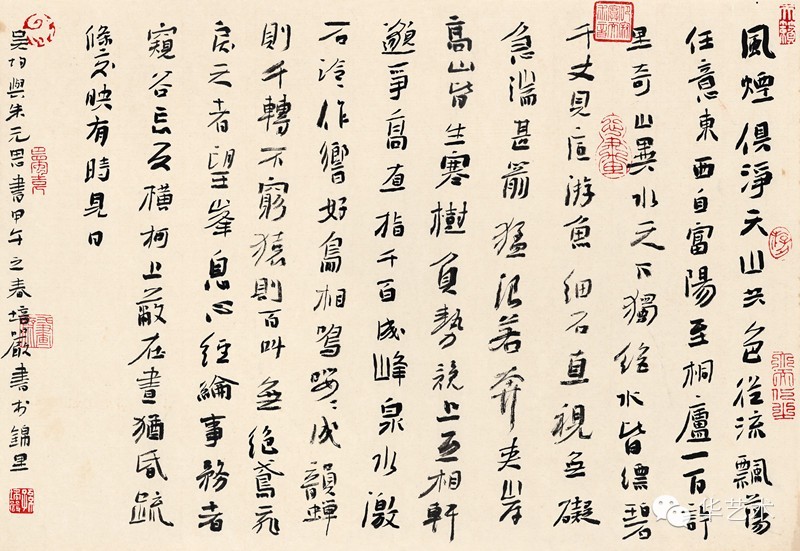 風煙俱淨天山共色從流飄蕩
任意東西自富陽至桐廬一百許
里奇山異水天下獨絕水皆縹碧
千丈見底游魚細石直視無礙
急湍甚箭猛浪若奔夾岸
高山皆生寒樹負勢競上互相軒
邈爭高直指千百成峰泉水激
石泠作響好鳥相鳴嚶〻成韻蟬
則千轉不窮猿則百叫無絕鳶飛
戾天者望峯息心經綸事務者
窺谷忘反橫柯上蔽在晝猶昏疏
條交映有時見日
吳均與朱元思書甲午之春培嚴書於錦里
华艺术